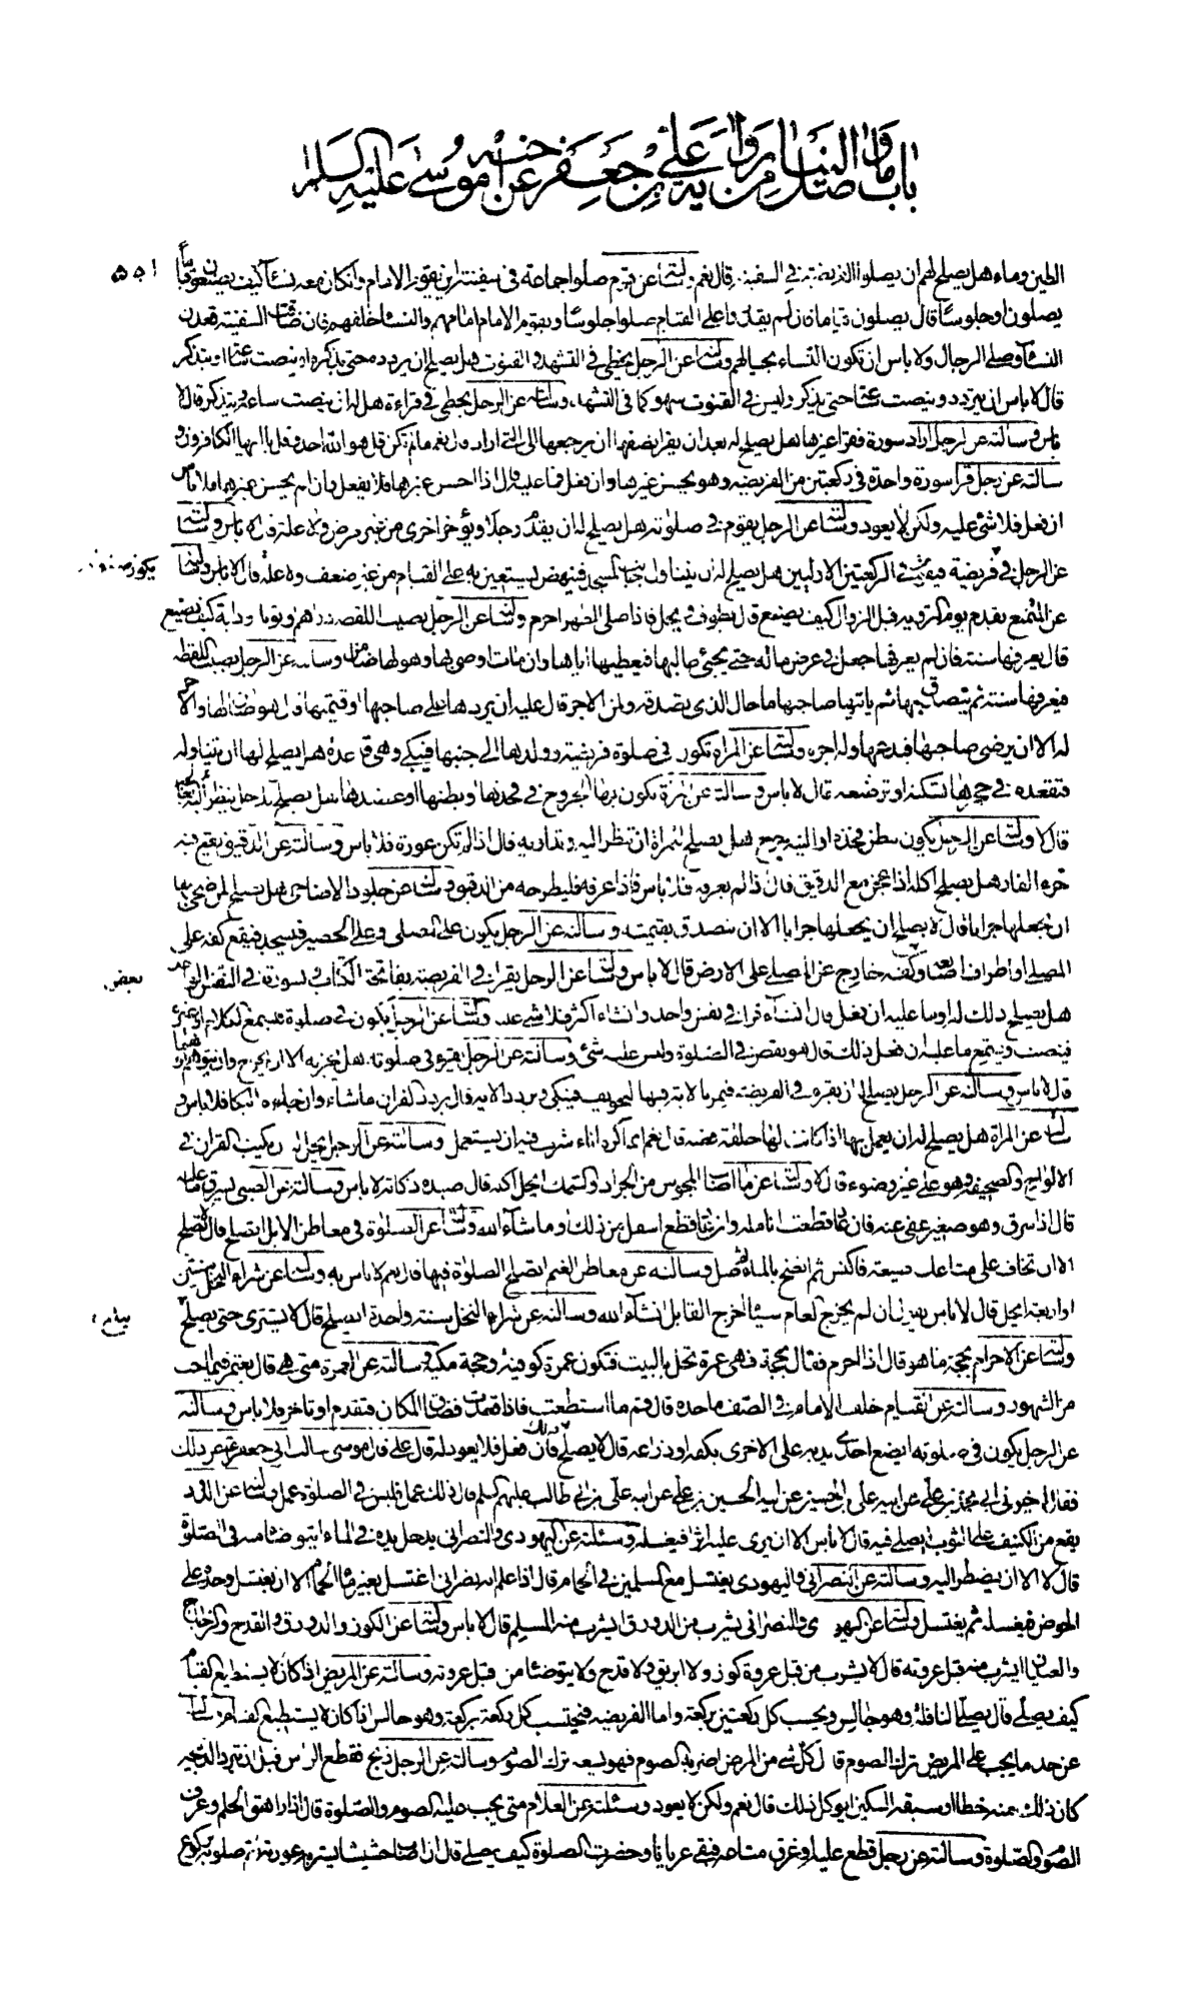 باب ما وصل الينا من رواية علي بن جعفر عن اخيه موسى عليه السلام
الطين وماء هل يصلح لهم ان يصلوا الفريضة في السفينة قال نعم وسألته عن قوم صلوا جماعة في سفينة اين يقوم الامام وان كان معه نساء كيف يصنعون قياما
يصلون او جلوسا قال يصلون قياما فان لم يقدروا على القيام صلوا جلوسا ويقوم الامام امامهم والنساء خلفهم فان ضاقت السفينة قعدن
النساء وصلى الرجال ولا باس ان تكون النساء بحيالهم وسألته عن الرجل يخطي في التشهد والقنوت هل يصلح ان يردد حتى يذكر او ينصت ساعة ويتذكر
قال لا باس ان يتردد وينصت ساعة حتى يذكر وليس في القنوت سهو كما في التشهد وسألته عن الرجل يخطي في قراءة هل له ان ينصت ساعة ويتذكر قال لا
باس وسألته عن رجل اراد سورة فقرا غيرها هل يصلح له بعد ان يقرا نصفها ان يرجع الى التي اراد قال نعم ما لم تكن قل هو الله احد وقل يا ايها الكافرون و
سالته عن رجل قرا سورة واحدة في ركعتين من الفريضة وهو يحسن غيرها وان فعل فما عليه قال اذا احسن غيرها فلا يفعل وان لم يحسن غيرها فلا باس
ان فعل فلا شئ عليه ولكن لا يعود وسألته عن الرجل يقوم في صلوته هل يصلح له ان يقدم رجلا ويؤخر اخرى من غير مرض ولا علة قال لا باس وسألته
عن الرجل في فريضة فيقوم في الركعتين الاوليين هل يصلح له ان يتناول جانب المسجد فينهض يستعين به على القيام من غير ضعف ولا علة قال لا باس وسألته
عن المتمتع يقدم يوم التروية قبل الزوال كيف يصنع قال يطوف ويحل فاذا صلى الظهر احرم وسألته عن الرجل يصيب اللقطة دراهم او ثوبا او دابة كيف يصنع
قال يعرفها سنة فان لم يعرفها جعلها في عرض ماله حتى يجئ طالبها فيعطيها اياها وان مات اوصى بها وهو لها ضامن وسالته عن الرجل يصيب اللقطة
فيعرفها سنة ثم يتصدق بها ثم ياتيها صاحبها ما حال الذي تصدق بها ولمن الاجر قال عليه ان يردها على صاحبها او قيمتها قال هو ضامن لها والاجر
له الا ان يرضى صاحبها فيدعها وله اجره وسألته عن المراة تكون في صلوة فريضة وولدها الى جنبها فيبكي وهي قاعدة هل يصلح لها ان تتناوله
فتقعده في حجرها وتسكته وترضعه قال لا باس وسالته عن المراة يكون بها الجروح في فخذها وبطنها او عضدها هل يصلح للرجل ينظر اليه يعالجه
قال لا وسألته عن الرجل يكون ببطن فخذه او اليته جرح هل يصلح للمراة ان تنظر اليه وتداويه قال اذا لم تكن عورة فلا باس وسالته عن الدقيق يقع فيه
خرء الفار هل يصلح اكله اذا عجن مع الدقيق قال اذا لم يعرفه فلا باس فاذا عرفه فليطرحه من الدقيق وسألته عن جلود الاضاحي هل يصلح لمن ضحى بها
ان يجعلها جرابا قال لا يصلح ان يجعلها جرابا الا ان يتصدق بقيمته وسالته عن الرجل يكون على المصلى وعلى الحصير فيسجد فيقع كفه على
المصلى او اطراف اصابعه وكفه خارج عن المصلى على الارض قال لا باس وسألته عن الرجل يقرا في الفريضة بفاتحة الكتاب وبسورة في النفس الواحد
هل يصلح ذلك له او ما عليه ان فعل قال ان شاء قرا في نفس واحد وان شاء اكثر فلا شي عليه وسألته عن الرجل يكون في صلوة فيسمع الكلام او غيره
فينصت ويستمع ما عليه ان فعل ذلك قال هو نقص في الصلوة وليس عليه شئ وسالته عن الرجل
قال لا باس وسالته عن الرجل يصلح له ان يقرء في الفريضة فيمر بالاية فيها التخويف فيبكي ويردد الاية قال يردد القران ما شاء وان جاءه البكا فلا باس و
سألته عن المراة هل يصلح له ان يعمل بها اذا كانت لها حلقة فضة قال نعم انما كره اناء شرب فيه ان يستعمل وسالته عن الرجل ايحل له ان يكتب القران في
الالواح والصحيفة وهو على غير وضوء قال لا وسألته عما اصاب المجوس من الجراد والسمك ايحل اكله قال صيده ذكاته لا باس وسالته عن الصبي يسرق ما عليه
قال اذا سرق وهو صغير عفى عنه فان عاد قطعت انامله وان عاد قطع اسفل من ذلك او ما شاء الله وسألته عن الصلوة في معاطن الابل اتصلح قال لا تصلح
الا ان تخاف على متاعك ضيعة فاكنس ثم انضح بالماء ثم صل وسالته عن معاطن الغنم ايصلح الصلوة فيها قال نعم لا باس به وسألته عن شراء النخل سنتين
او اربعة ايحل قال لا باس يقول ان لم يخرج العام شيئا اخرج القابل ان شاء الله وسالته عن شراء النخل سنة واحدة ايصلح قال لا يشترى حتى يصلح
وسألته عن الاحرام بحجة ما هو قال اذا احرم فقال بحجة فهي عمرة تحل بالبيت فتكون عمرة كوفية وحجة مكية وسالته عن العمرة متى هي قال يعتمر فيما احب
من الشهور وسالته عن القيام خلف الامام في الصف ما حده قال قم ما استطعت فاذا قعدت فضاق المكان فتقدم او تاخر فلا باس وسالته
عن الرجل يكون في صلوته ايضع احدى يديه على الاخرى بكفه او ذراعه قال لا يصلح ذلك فان فعل فلا يعود له قال علي قال موسى سالت ابي جعفر عن ذلك
فقال اخبرني ابي محمد بن علي عن ابيه علي بن الحسين عن ابيه الحسين بن علي عن ابيه علي بن ابي طالب عليهم السلام قال ذلك عمل وليس في الصلوة عمل وسألته عن الدود
يقع من الكنيف على الثوب ايصلى فيه قال لا باس الا ان يرى عليه اثرا فيغسله وسئلته عن اليهودي والنصراني يدخل يده في الماء ايتوضا منه في الصلوة
قال لا الا ان يضطر اليه وسالته عن النصراني واليهودي يغتسل مع المسلمين في الحمام قال اذا علم انه نصراني اغتسل بغير ماء الحمام الا ان يغتسل وحده على
الحوض فيغسله ثم يغتسل وسألته عن اليهودي والنصراني يشرب من الدورق ايشرب منه المسلم قال لا باس وسألته عن الكوز والدورق والقدح والزجاج
والعيدان ايشرب منه قبل عروته قال لا يشرب من قبل عروة كوز ولا ابريق ولا قدح ولا يتوضا من قبل عروته وسالته عن المريض اذا كان لا يستطيع القيام
كيف يصلي قال يصلي النافلة وهو جالس ويحسب كل ركعتين بركعة واما الفريضة فيحتسب كل ركعة بركعة وهو جالس اذا كان لا يستطيع القيام وسألته
عن حد ما يجب على المريض ترك الصوم قال كل شئ من المرض اضر به الصوم فهو يسعه ترك الصوم وسالته عن الرجل ذبح فقطع الراس قبل ان تبرد الذبيحة
كان ذلك منه خطا او سبقه السكين ايؤكل ذلك قال نعم ولكن لا يعود وسئلته عن الغلام متى يجب عليه الصوم والصلوة قال اذا راهق الحلم وعرف
الصوم والصلوة وسالته عن رجل قطع عليه او غرق متاعه فبقي عريانا وحضرت الصلوة كيف يصلي قال ان اصاب حشيشا يستر به عورته اتم صلوته بركوع